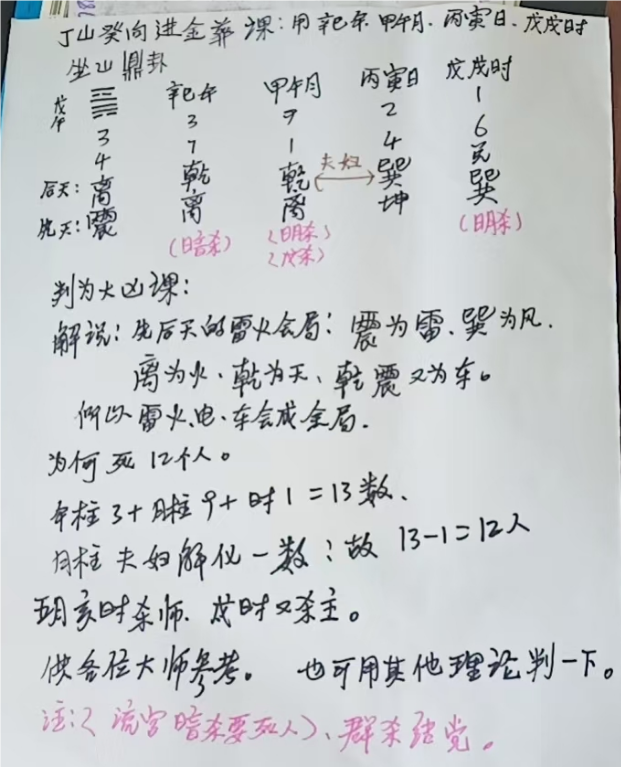 丁山癸向进金葬课：用辛巳年.甲午月.丙寅日.戊戌时
坐山鼎卦
戊午 辛巳年 甲午月 丙寅日 戊戌时
3 9 2 1
3 7 1 4 6
4 乾 乾 夫妇 巽 兑
后天：离 离 离 坤 巽
先天：震 (暗杀) (明杀) (明杀)
(戊杀)
判为大凶课：
解说：先后天的雷火会局：震为雷、巽为风.
离为火、乾为天、乾震又为车。
何以雷火、电、车会成全局.
为何死12个人。
年柱3+月柱9+时1=13数、
月柱夫妇解化一数：故13-1=12人
明亥时杀师.戊时又杀主。
供各位大师参考。也可用其他理论判一下。
注：（流宫暗杀要死人）、群杀结党。